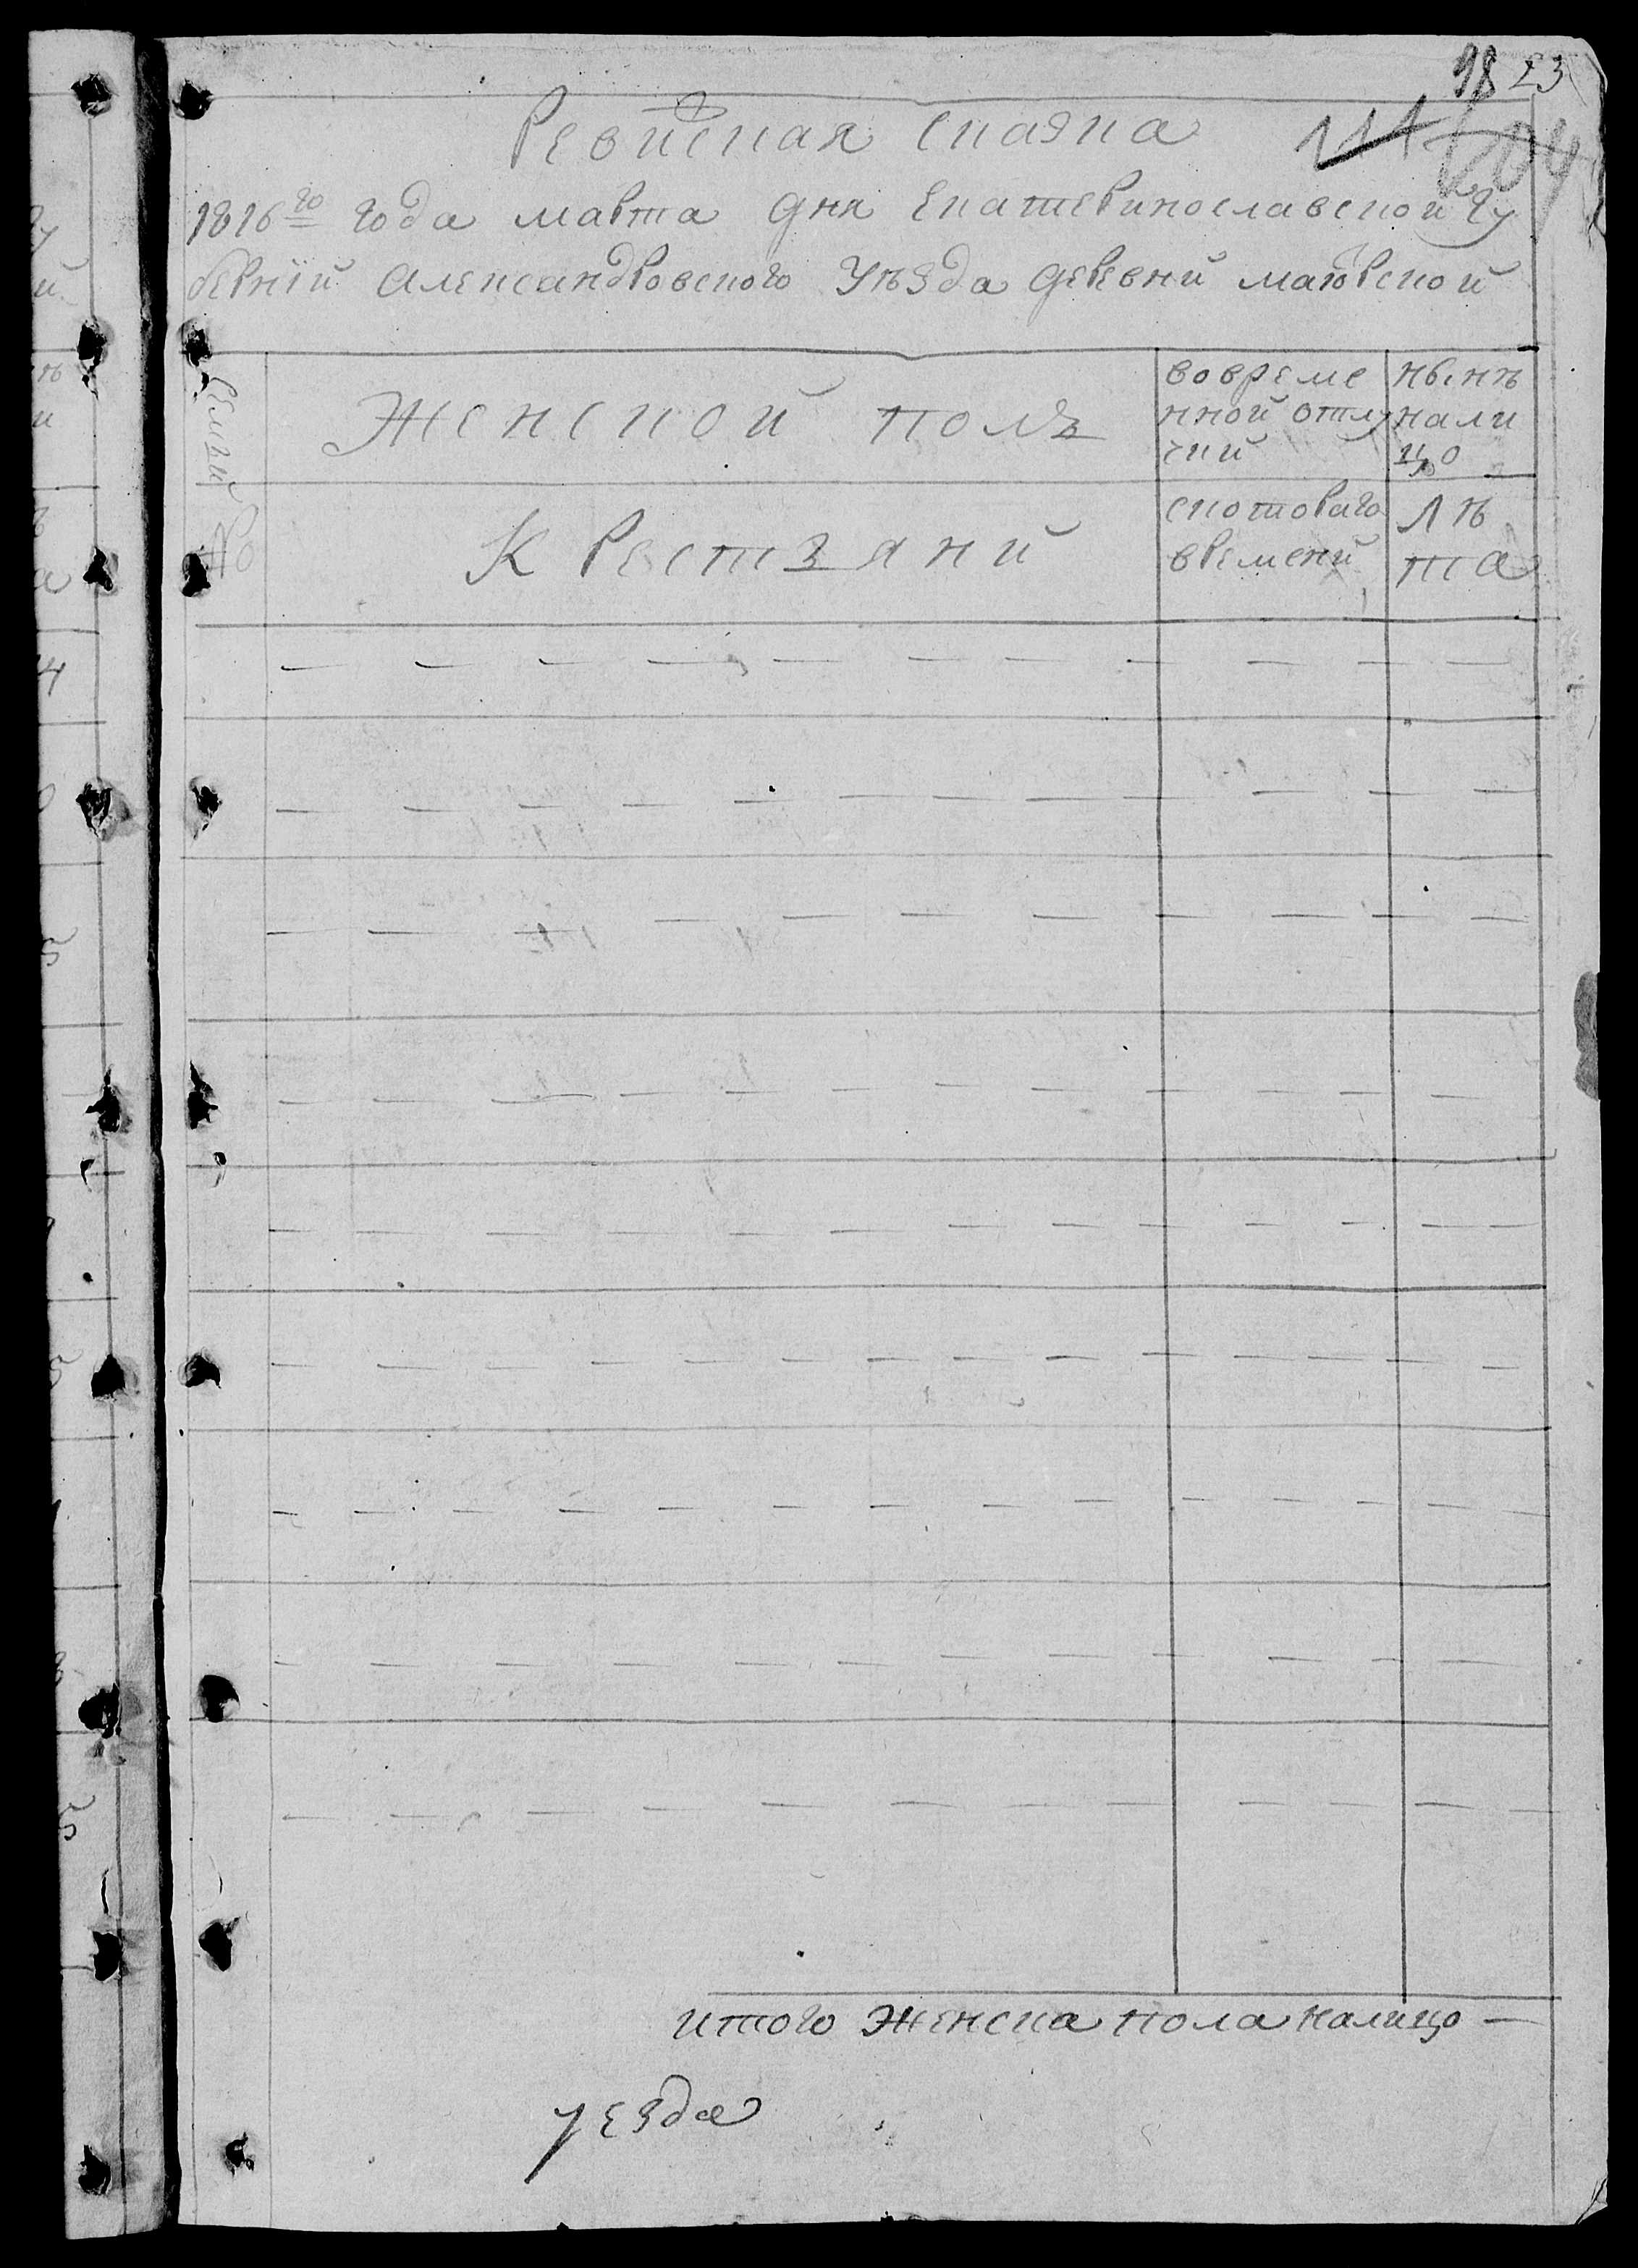 18 23
111 104
Ревиская сказка
1816го года марта дня Екатеринославской гу
берніи Александровского Уѣзда деревни маюрской
Семьи
№
Женской полъ
вовреме
нной отлу
чки
нынѣ
нали
цо
Крестьяни
скотораго
времени
лѣ
та
итого женска пола налицо —
уезда